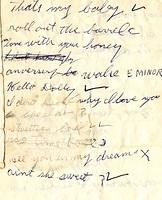 thats my baby ✓
roll out the barrel c
Time with your honey
anversery walse E MINOR
Hello Dolly ✓
I dont know why I love you
see you in my dreams X
aint she sweet ? ✓